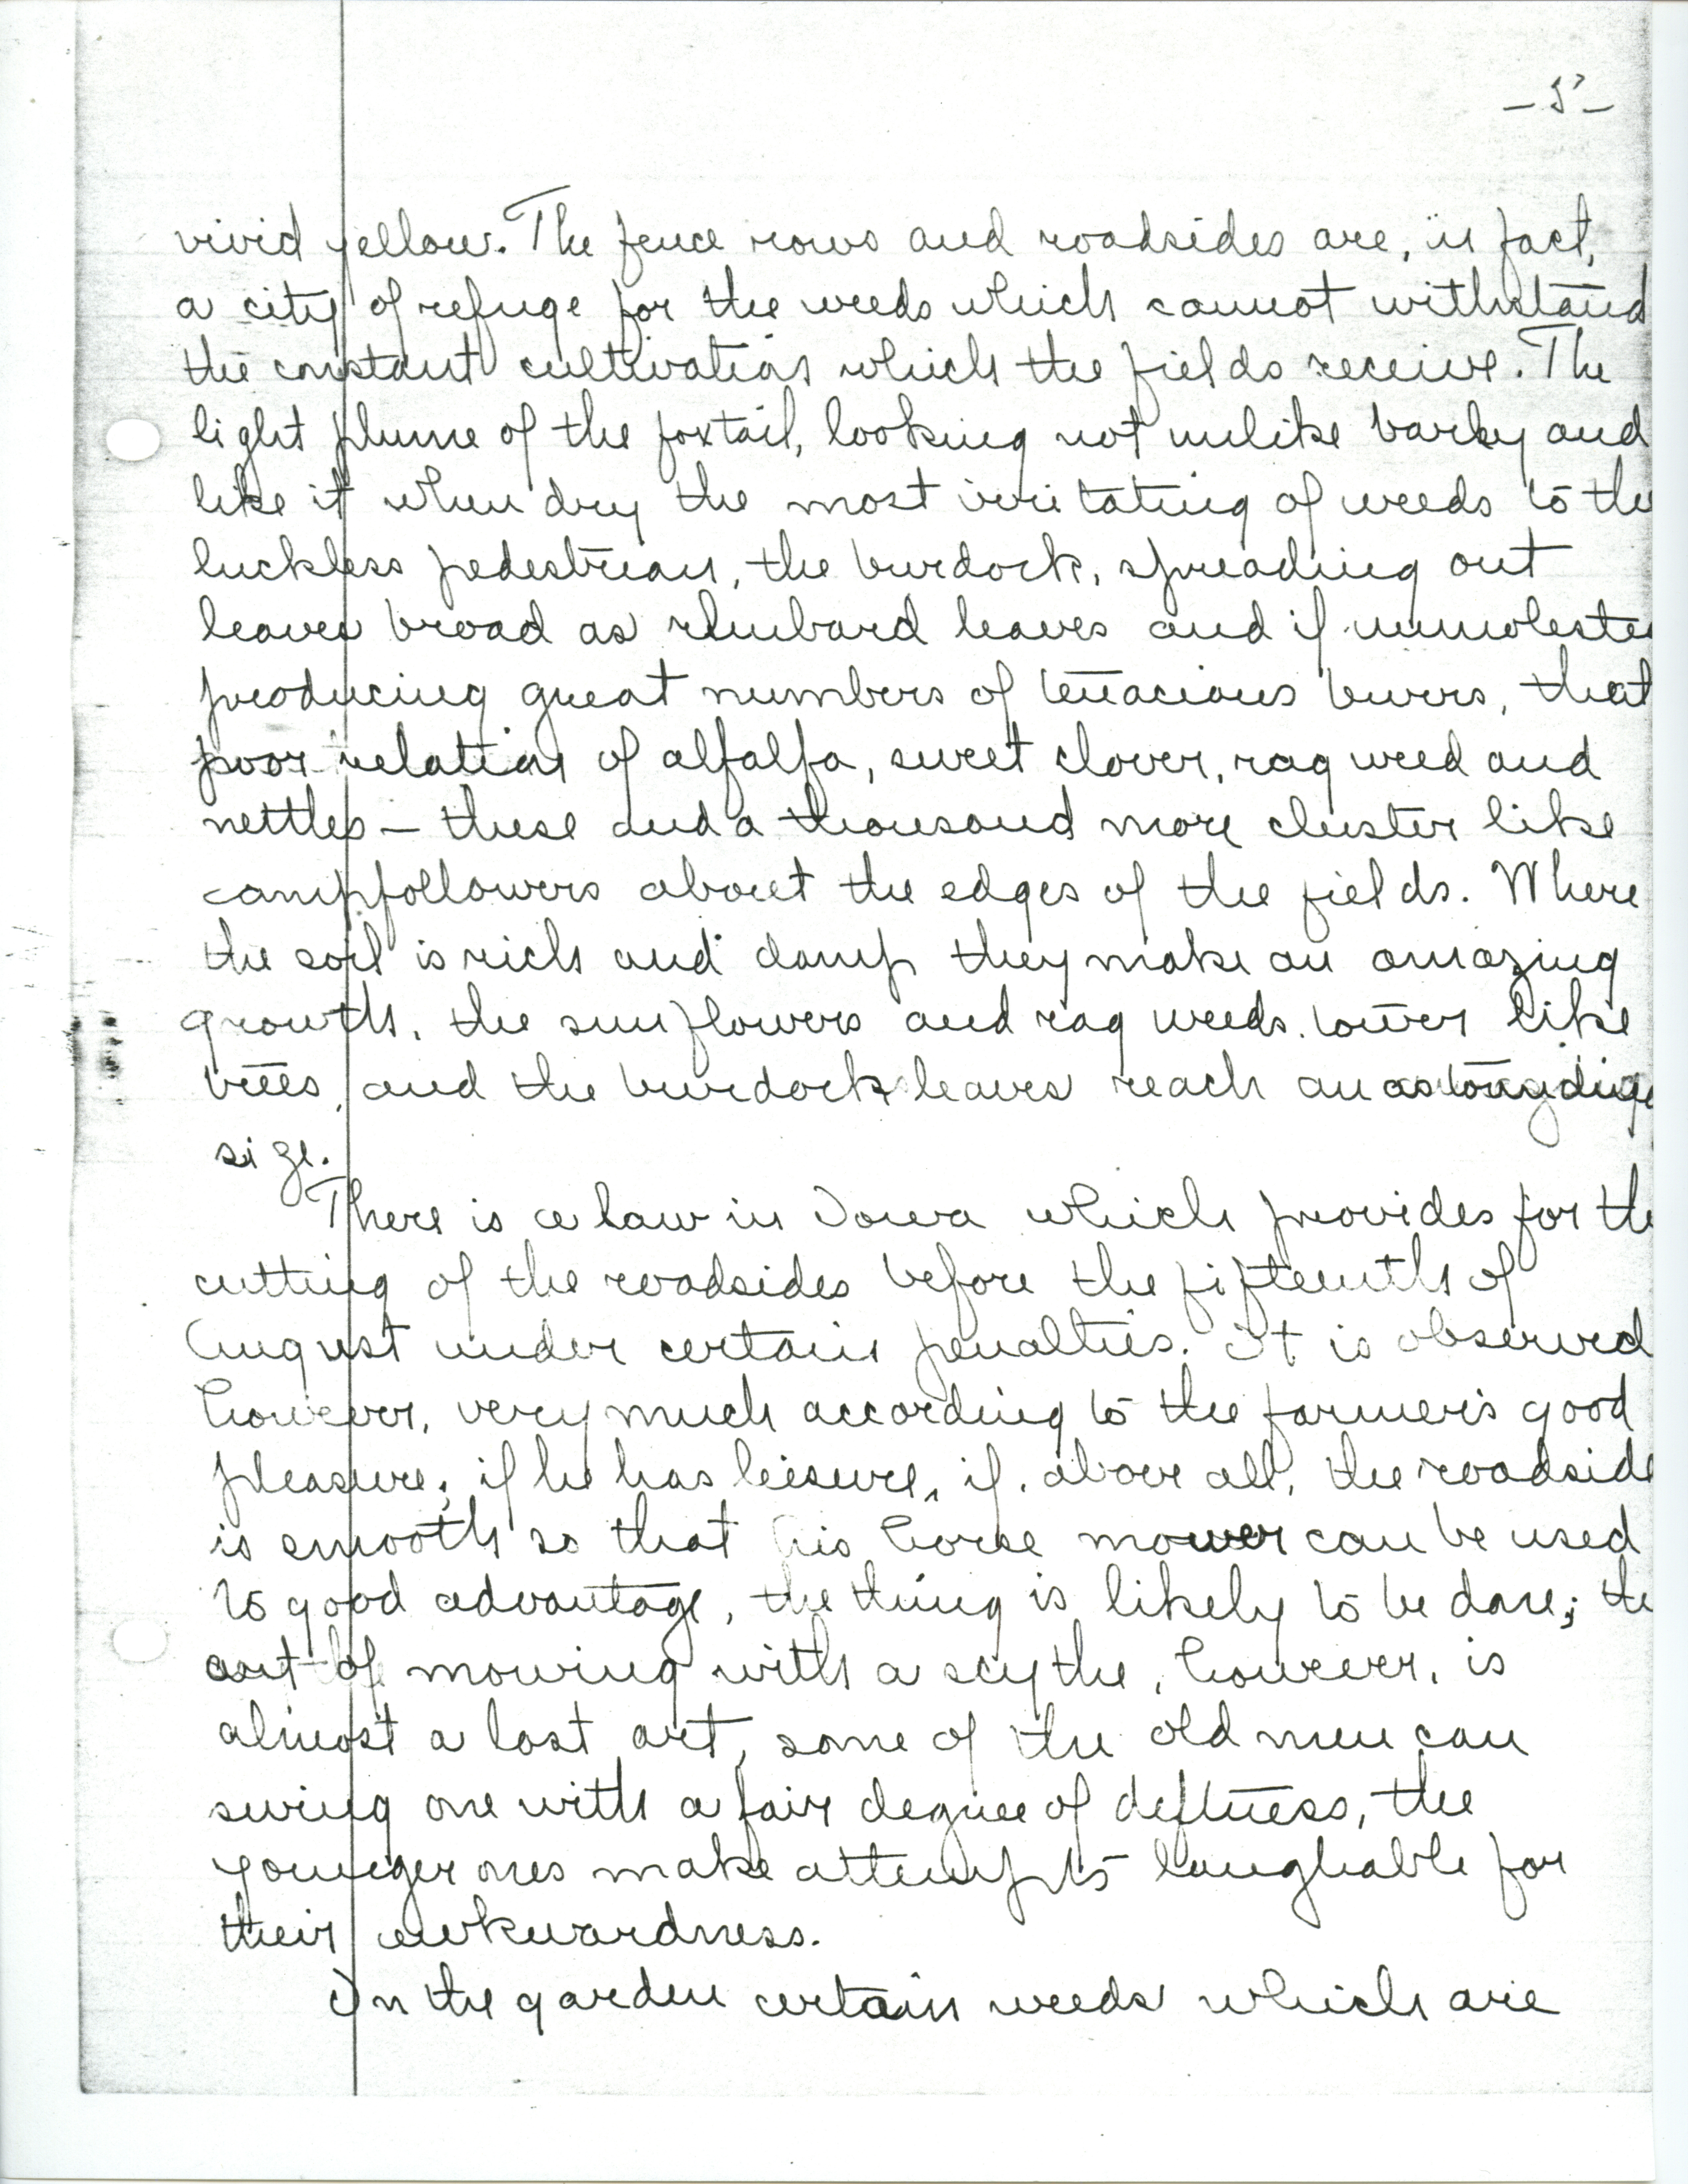 -5-
vivid yellow. The fence rows and roadsides are, in fact,
a city of refuge for the weeds which cannot withstand
the constant cultivation which the fields receive. The
light plume of the foxtail, looking not unlike barley and
like it when dry the most irritating of weeds to the
luckless pedestrian, the burdock, spreading out
leaves broad as rhubard leaves and if unmolested
producing great numbers of tenacious burrs, that
poor relation of alfalfa, sweet clover, rag weed and
nettles — these and a thousand more cluster like
campfollowers about the edges of the fields. Where
the soil is rich and damp they make an amazing
growth, the sunflowers and rag weeds tower like
trees, and the burdock leaves reach an
size.
There is a law in Iowa which provides for the
cutting of the roadsides before the fifteenth of
August under certain penalties. It is observed
however, very much according to the farmer's good
pleasure; if he has liesure, if, above all, the roadside
is smooth so that his horse mower can be used
to good advantage, the thing is likely to be done; the
art of mowing with a scythe, however, is
almost a lost art, some of the old men can
swing one with a fair degree of deftness, the
younger ones make attempts laughable for
their awkwardness.
In the garden certain weeds which are